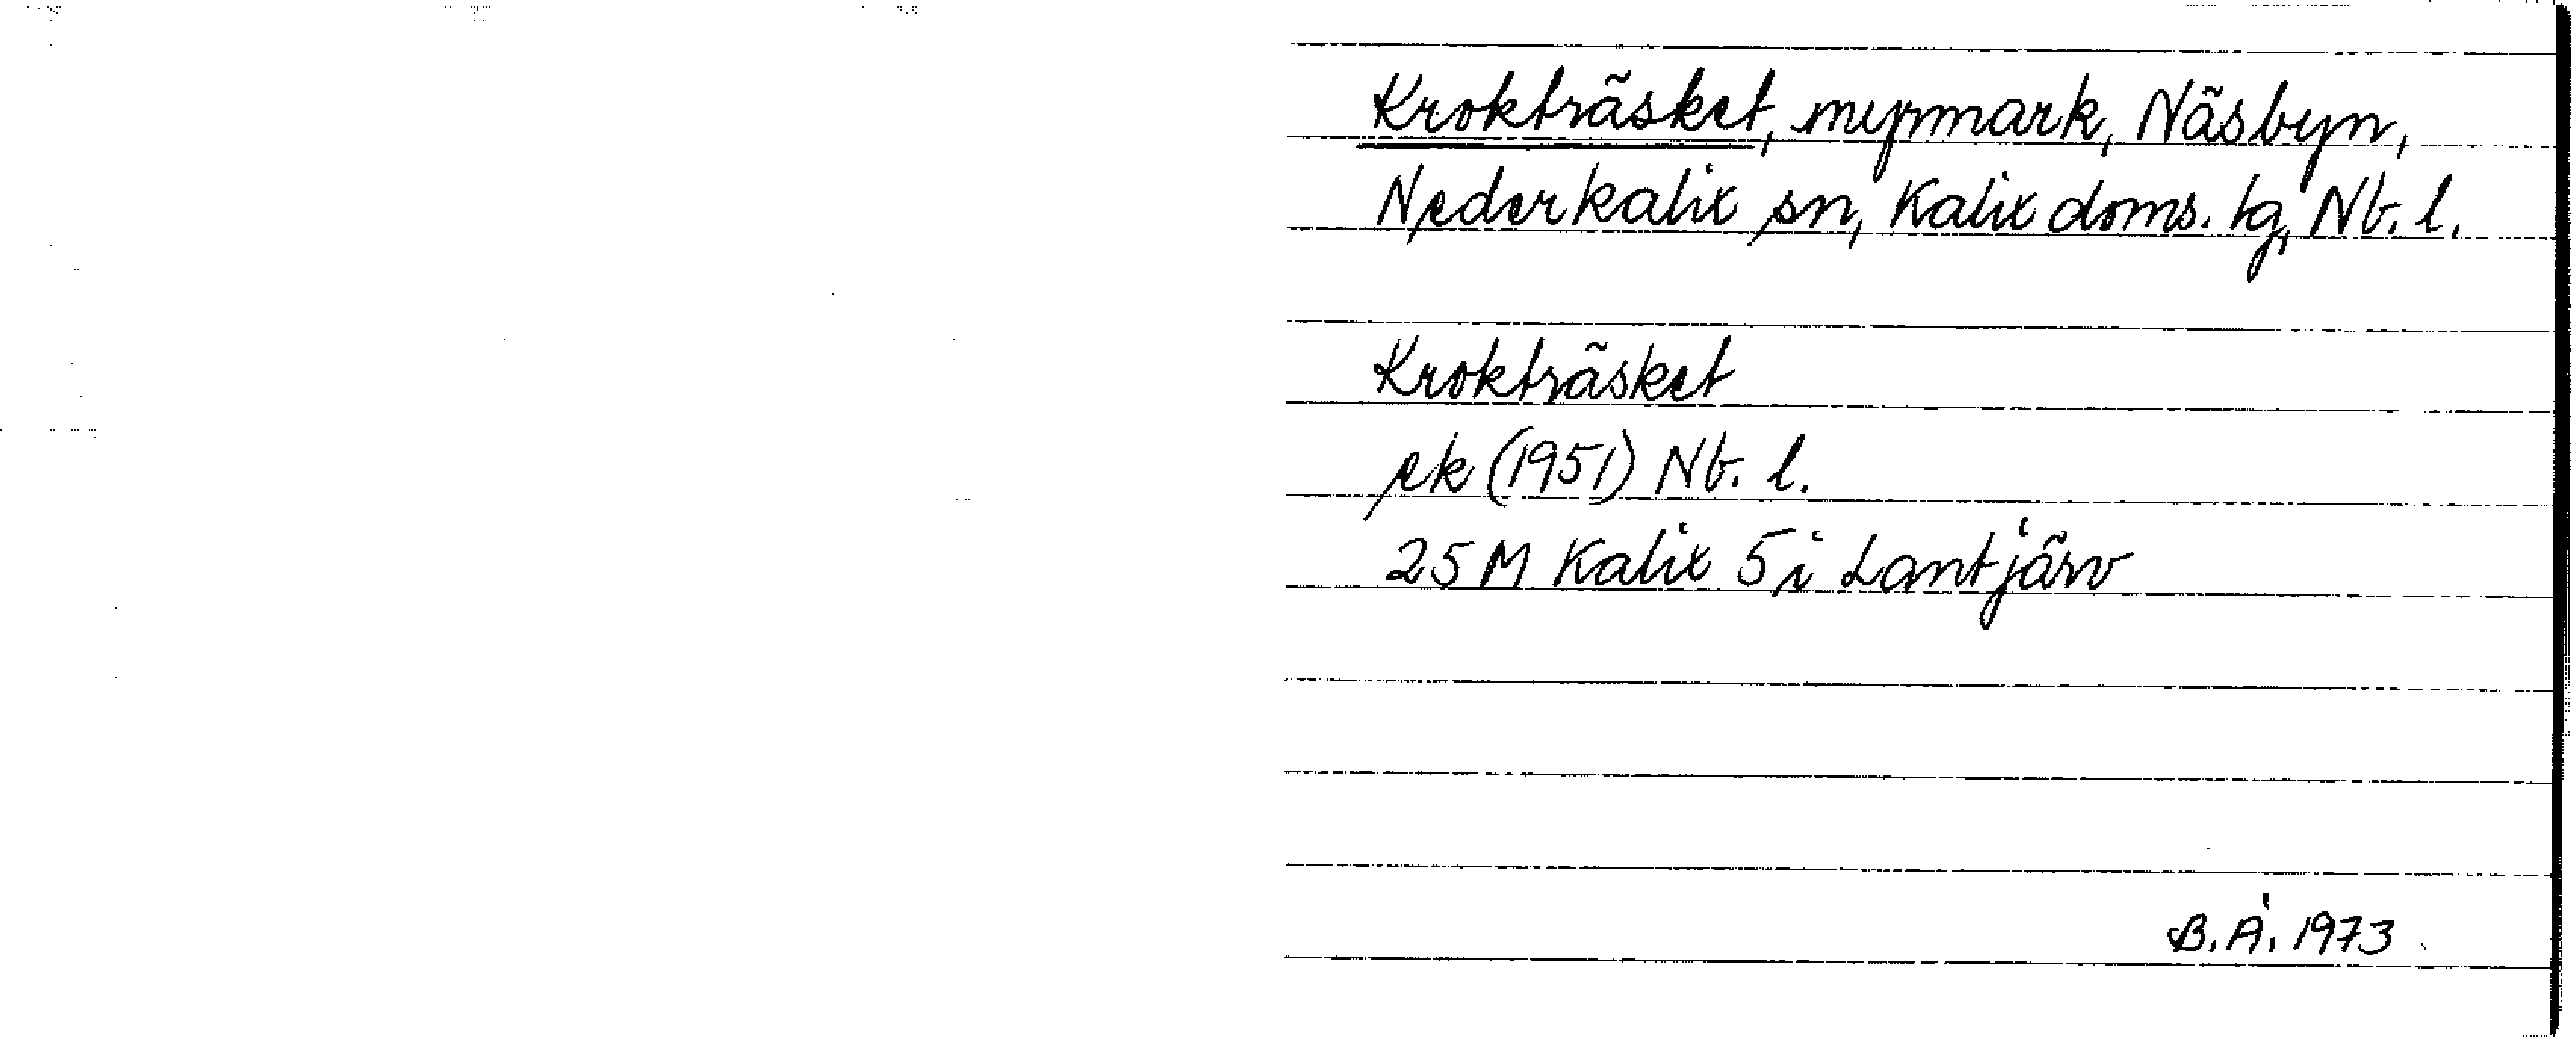 Krokträsket, myrmark, Näsbyn,
Nederkalix sn, Kalix doms. tg, Nb. l.
Krokträsket
ek (1951) Nb. l.
25 M Kalix 5 i Lantjärv
B. Å. 1973